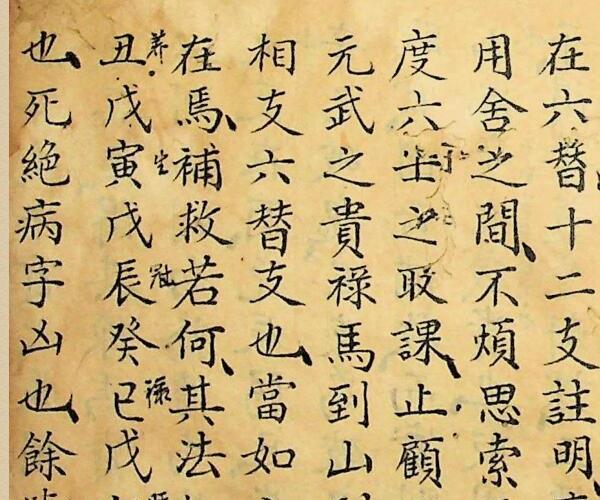 在六替十二支註明
用舍之間不煩思索
度六壬之取課止顧
元武之貴祿馬到山
相支六替支也當如
在焉補救若何其法
丑戊寅戊辰癸巳戊
養生冠祿
也死絕病字凶也餘